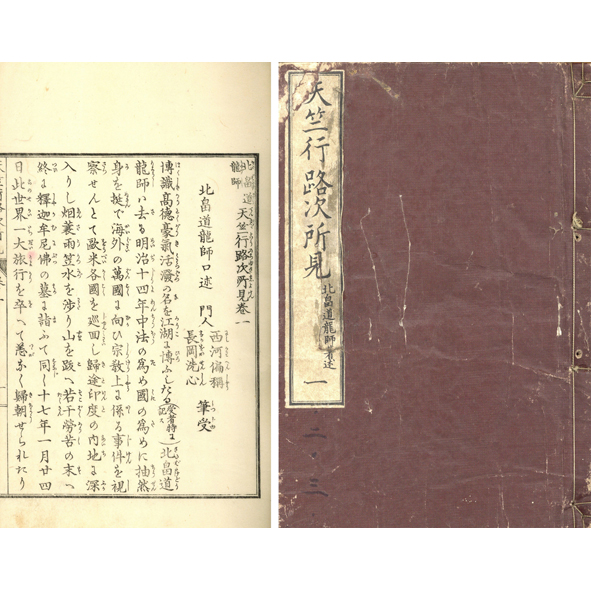 天竺行路次所見
北畠道龍師著述
一
二、三、
北畠道龍師
天竺行路次所見卷一
北畠道龍師口述
門人
西河偏稱
長岡洗心
筆受
博識高德豪氣活潑の名を江湖に博ふしたる北畠道
龍師ハ去る明治十四年中法の爲め國の爲めに抽然
身を挺で海外の萬國に向ひ宗敎上に係る事件を視
察せんとて歐米各國を巡回し歸途印度の內地に深
入りし烟蓑雨笠水を渉り山を跋へ若干勞苦の末へ
終に釋迦牟尼佛の墓に詣ふで同し十七年一月廿四
日此世界一大旅行を卒へて恙なく歸朝せられたり